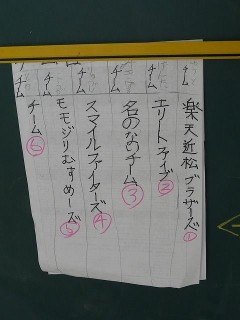 楽天近松ブラザーズ①
エリートファイブ②
名のなのチーム③
スマイルファイターズ④
モモジリむすめーズ⑤
チーム⑥
チーム
チーム
チーム
チーム
チーム